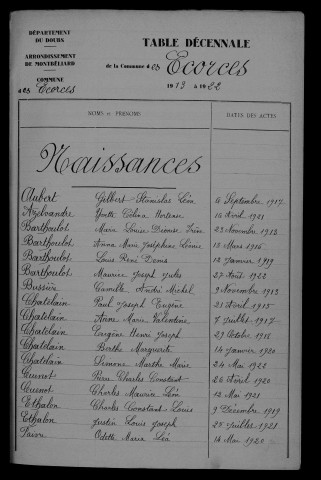 DÉPARTEMENT
DU DOUBS
ARRONDISSEMENT
DE MONTBÉLIARD
COMMUNE
des Ecorces
TABLE DÉCENNALE
de la Commune des Ecorces
1913 à 1922
NOMS et PRÉNOMS
DATES DES ACTES
Naissances
Aubert Gilbert Stanislas Léon 4 Septembre 1917
Yvette Célina Hortense 14 Avril 1921
Barthoulot Marie Louise Irène 23 Novembre 1913
Barthoulot Anna Marie Joséphine 13 Mars 1916
Barthoulot Louis René Denis 12 Janvier 1919
Barthoulot Maurice Joseph Jules 27 Août 1922
Bussière Camille André Michel 9 Novembre 1913
Chatelain Paul Joseph Eugène 21 Avril 1915
Chatelain Anne Marie Valentine 7 Juillet 1917
Chatelain Eugène Henri Joseph 29 Octobre 1918
Chatelain Berthe Marguerite 14 Janvier 1920
Chatelain Simone Marthe Marie 24 Mai 1922
Cuenot Pierre Charles Constant 26 Avril 1920
Cuenot Charles Maurice Léon 12 Mai 1921
Ethalon Charles Constant Louis 9 Décembre 1919
Ethalon Justin Louis Joseph 25 Juillet 1921
Odette Maria Léa 14 Mai 1920